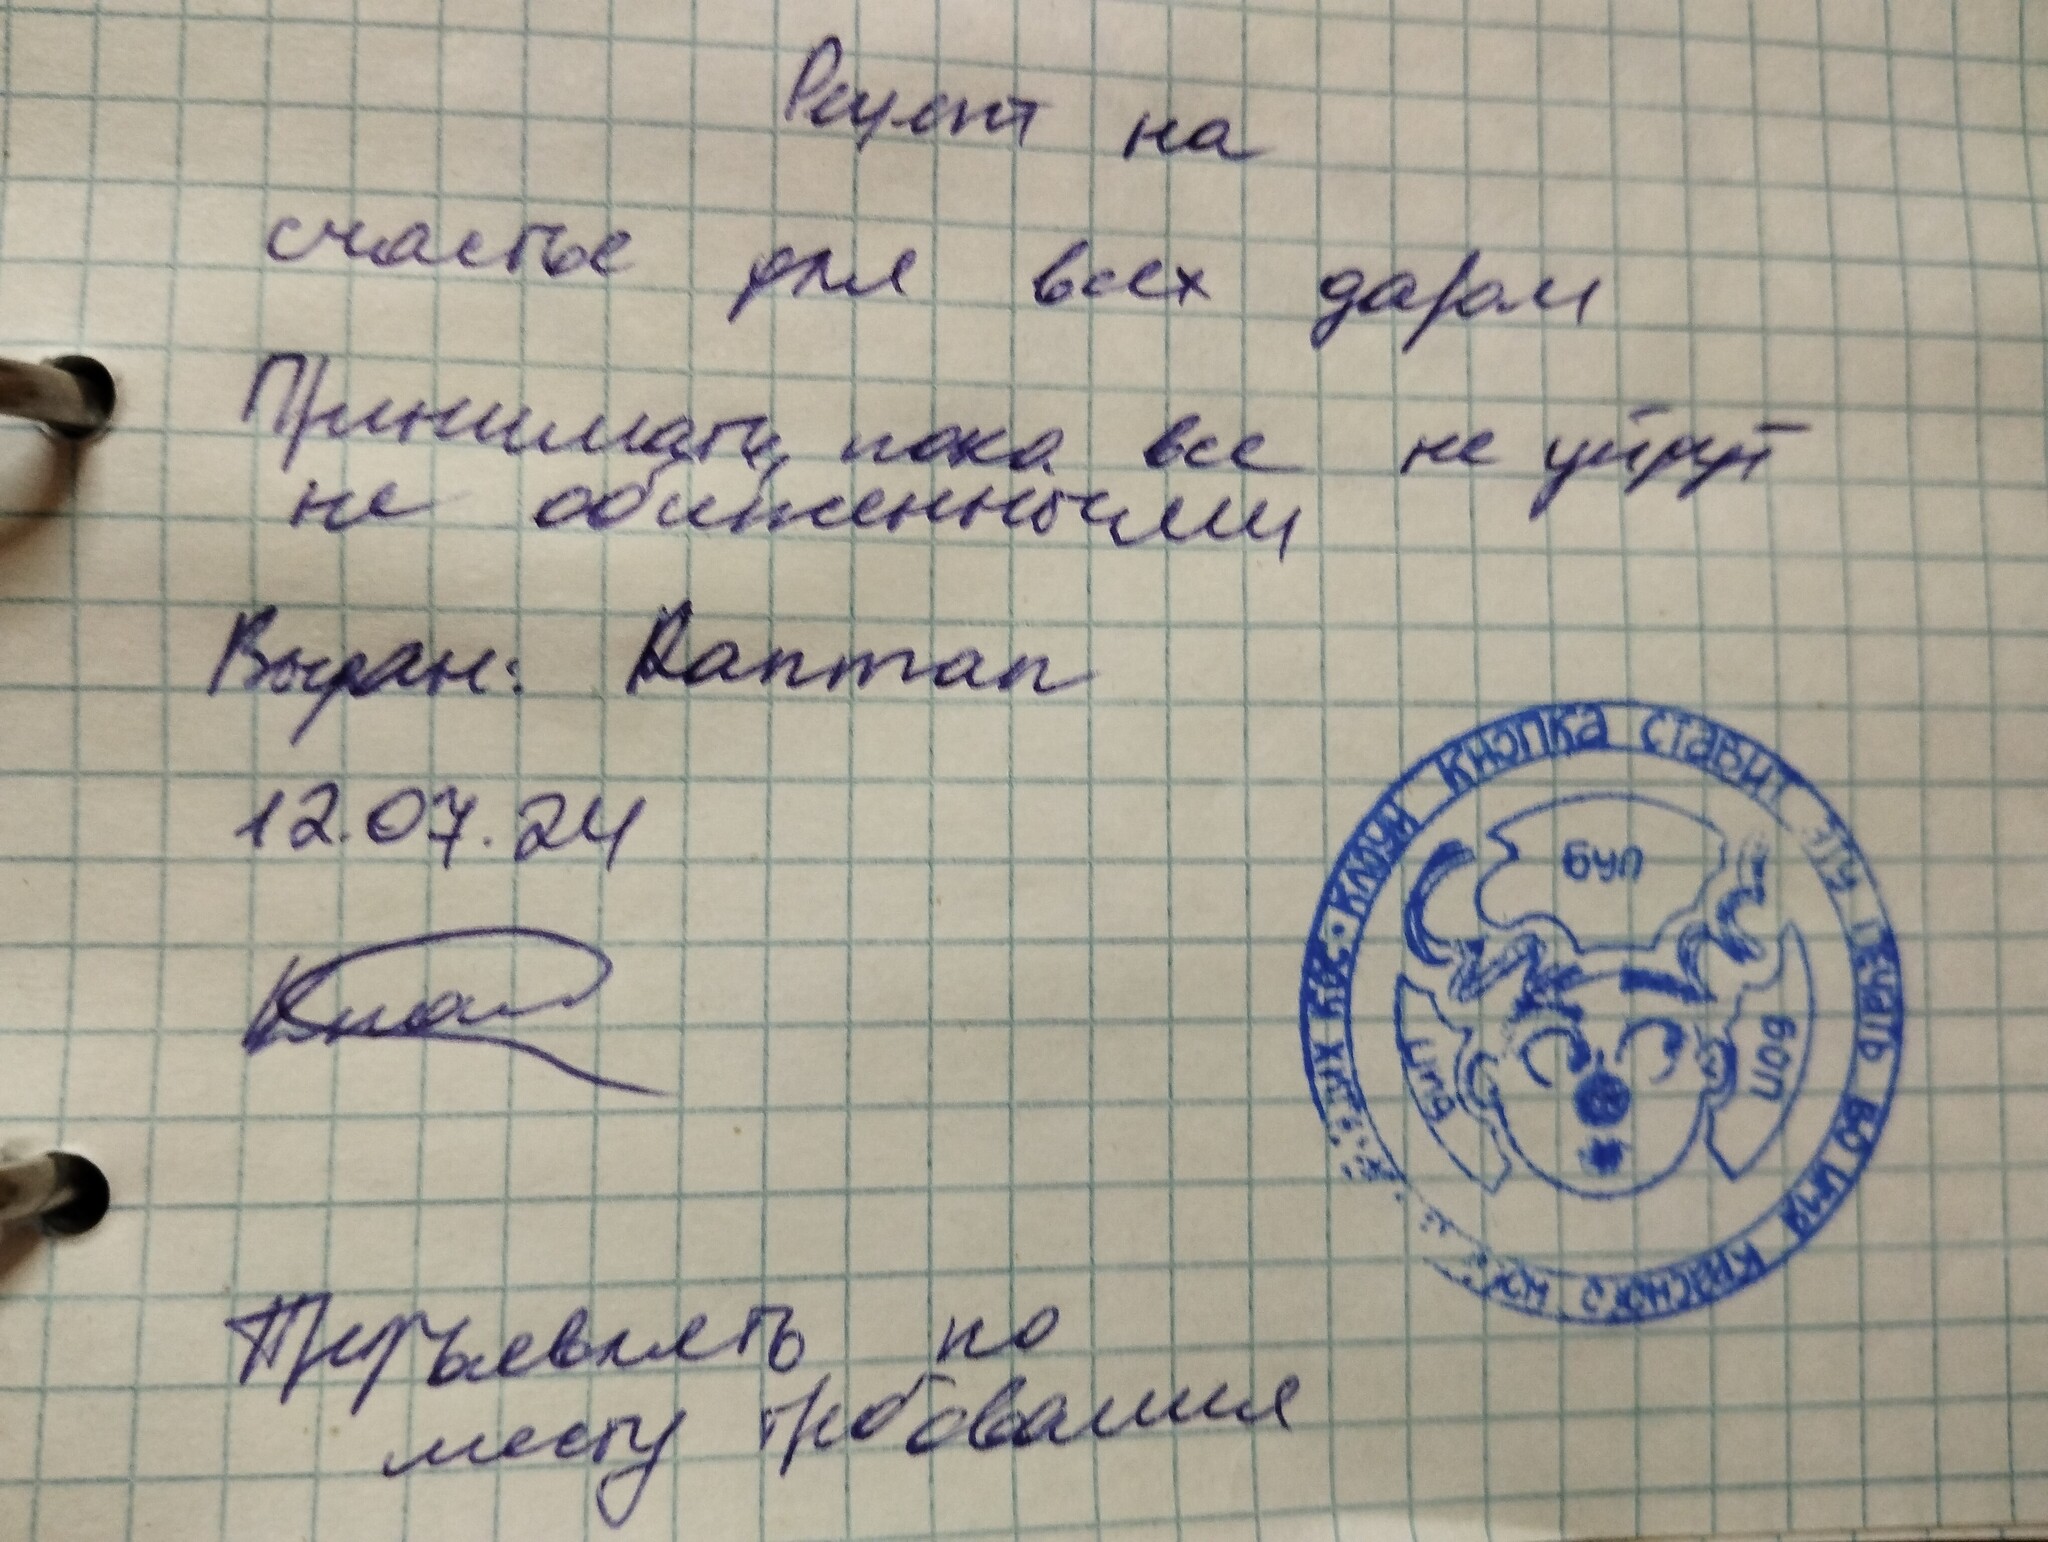 Рецепт на
счастье для всех даром
Принимать, пока все не уйдут
не обиженными
Выдан:
12.07.24
Предъевлять по
месту требования
КЛОУН КНОПКА СТАВИТ ЭТУ ПЕЧАТЬ ВО ИМЯ КРАСНОГО
БУЛ
БИП
БОП